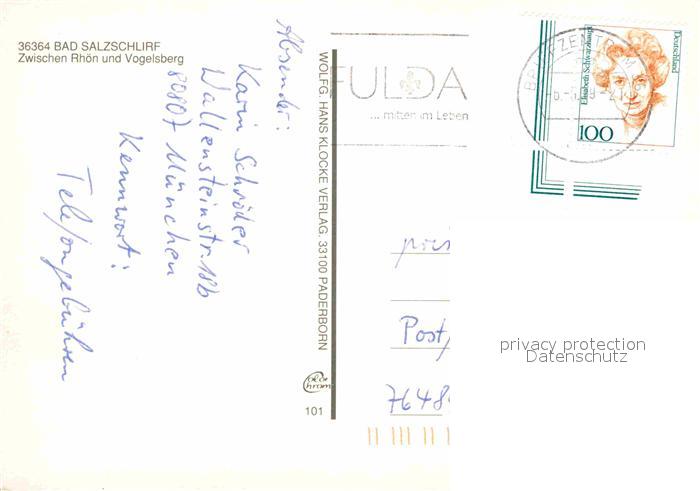 36364 BAD SALZSCHLIRF
Zwischen Rhön und Vogelsberg
Absender:
Karin Schröder
Wallensteinstr. 18b
80807 München
Kennwort:
Telefongebühren
WOLFG. HANS KLOCKE VERLAG, 33100 PADERBORN
101
FULDA
... mitten im Leben
BRIEFZENTRUM
Deutschland
Elisabeth Schwarzhaupt
100
Post
7648
privacy protection
Datenschutz